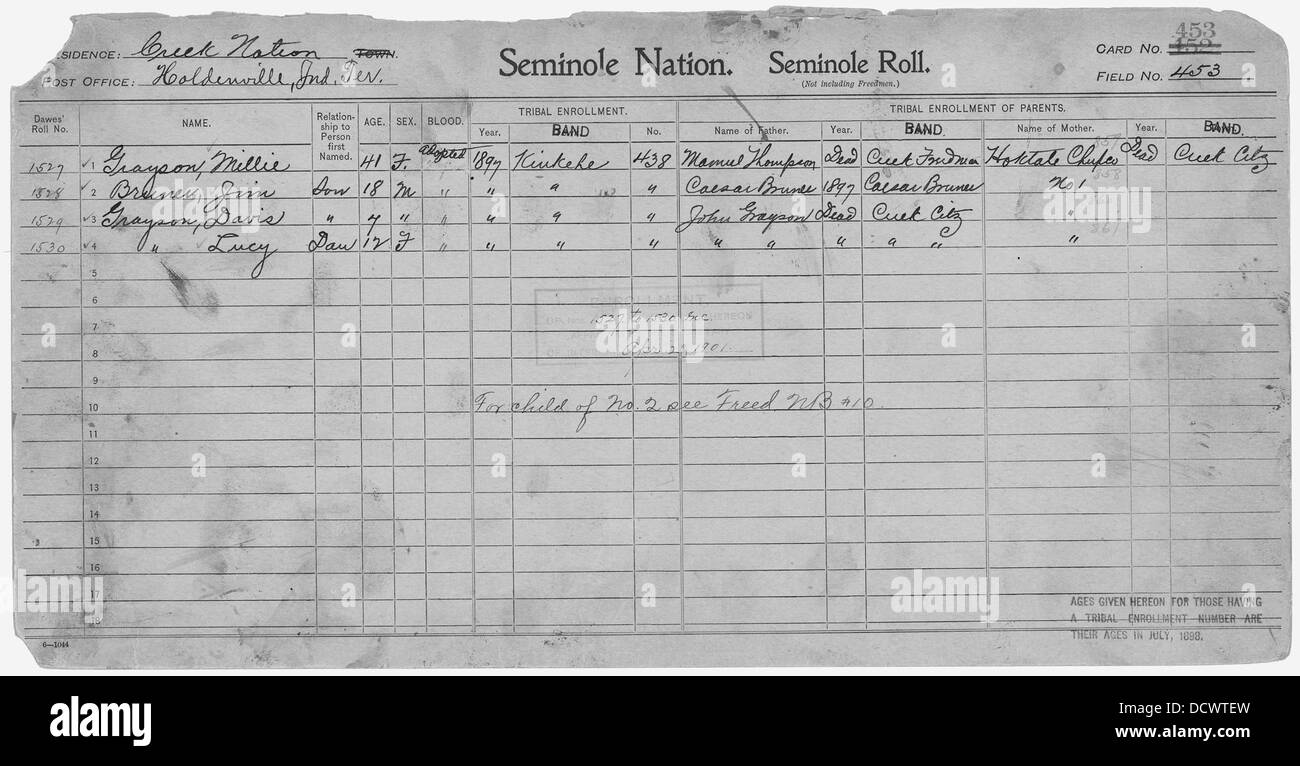 453
SIDENCE: Creek Nation TOWN.
Seminole Nation. Seminole Roll.
CARD NO. 452
POST OFFICE: Holdenville, Ind. Ter.
(Not including Freedmen.)
FIELD NO. 453
Dawes' Roll No. NAME. Relationship to Person first Named. AGE. SEX. BLOOD. TRIBAL ENROLLMENT. TRIBAL ENROLLMENT OF PARENTS.
Year. BAND No. Name of Father. Year. BAND. Name of Mother. Year. BAND.
1527 ✓ 1 Grayson, Millie 41 F. adopted 1897 Kinkehe 438 Manuel Thompson Dead Creek Freedman Hoktate Chupco Dead Creek Citz
1528 ✓ 2 Bruner, Jim Son 18 M " " " " Caesar Bruner 1897 Caesar Bruner No 1
1529 ✓ 3 Grayson, Davis " 7 " " " " " John Grayson Dead Creek Citz "
1530 ✓ 4 " Lucy Dau 12 F " " " " " " " " " "
5
6
ENROLLMENT
HEREON
1527 to 1530 Inc.
7
8
Apr 2, 1901
9
10 For child of No. 2 see Freed. NB #10.
11
12
13
14
15
16
17
18
AGES GIVEN HEREON FOR THOSE HAVING
A TRIBAL ENROLLMENT NUMBER ARE
THEIR AGES IN JULY, 1898.
6—1044
alamy
alamy
alamy
a
a
a
a
a
a
a
a
a
alamy
Image ID: DCWTEW
www.alamy.com